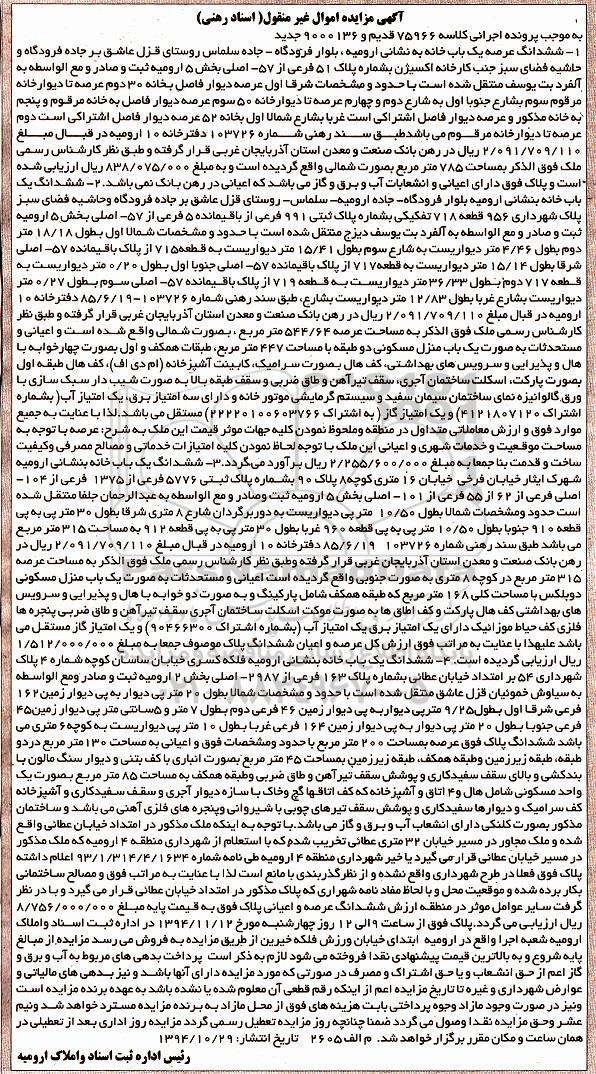 آگهی مزایده اموال غیر منقول( اسناد رهنی)
به موجب پرونده اجرائی کلاسه ۷۵۹۶۶ قدیم و ۹۰۰۰۱۳۶ جدید
۱- ششدانگ عرصه یک باب خانه به نشانی ارومیه ، بلوار فرودگاه - جاده سلماس روستای قزل عاشق بر جاده فرودگاه و
حاشیه فضای سبز جنب کارخانه اکسیژن بشماره پلاک ۵۱ فرعی از ۵۷- اصلی بخش ۵ ارومیه ثبت و صادر و مع الواسطه به
آلفرد بت یوسف منتقل شده است با حدود و مشخصات شرقا اول عرصه دیوار فاصل بخانه ۳۰ دوم عرصه تا دیوارخانه
مرقوم سوم بشارع جنوبا اول به شارع دوم و چهارم عرصه تا دیوارخانه ۵۰ سوم عرصه دیوار فاصل به خانه مرقوم و پنجم
به خانه مذکور و عرصه دیوار فاصل اشتراکی است غربا بشارع شمالا اول بخانه ۵۲ عرصه دیوار فاصل اشتراکی است دوم
عرصه تا دیوارخانه مرقوم می باشدطبق سند رهنی شماره ۱۰۳۷۲۶ دفترخانه ۱۰ ارومیه در قبال مبلغ
۲/۰۹۱/۷۰۹/۱۱۰ ریال در رهن بانک صنعت و معدن استان آذربایجان غربی قرار گرفته و طبق نظر کارشناس رسمی
ملک فوق الذکر بمساحت ۷۸۵ متر مربع بصورت شمالی واقع گردیده است و به مبلغ ۸۳۸/۰۷۵/۰۰۰ ریال ارزیابی شده
است و پلاک فوق دارای اعیانی و انشعابات آب و برق و گاز می باشد که اعیانی در رهن بانک نمی باشد. ۲- ششدانگ یک
باب خانه بنشانی ارومیه بلوار فرودگاه- جاده ارومیه- سلماس- روستای قزل عاشق بر جاده فرودگاه وحاشیه فضای سبز
پلاک شهرداری ۹۵۶ قطعه ۷۱۸ تفکیکی بشماره پلاک ثبتی ۹۹۱ فرعی از باقیمانده ۵ فرعی از ۵۷- اصلی بخش ۵ ارومیه
ثبت و صادر و مع الواسطه به آلفرد بت یوسف دیزج منتقل شده است با حدود و مشخصات شمالا اول بطول ۱۸/۱۸ متر
دوم بطول ۴/۴۶ متر دیواریست به شارع سوم بطول ۱۵/۴۱ متر دیواریست به قطعه۷۱۵ از پلاک باقیمانده ۵۷- اصلی
شرقا بطول ۱۵/۱۴ متر دیواریست به قطعه۷۱۷ از پلاک باقیمانده ۵۷- اصلی جنوبا اول بطول ۰/۲۰ متر دیواریست به
قطعه ۷۱۷ دوم بطول ۳۶/۳۳ متر دیواریست به قطعه ۷۱۹ از پلاک باقیمانده ۵۷- اصلی سوم بطول ۰/۲۷ متر
دیواریست بشارع غربا بطول ۱۲/۸۳ متر دیواریست بشارع، طبق سند رهنی شماره ۱۰۳۷۲۶-۸۵/۶/۱۹ دفترخانه ۱۰
ارومیه در قبال مبلغ ۲/۰۹۱/۷۰۹/۱۱۰ ریال در رهن بانک صنعت و معدن استان آذربایجان غربی قرار گرفته و طبق نظر
کارشناس رسمی ملک فوق الذکر به مساحت عرصه ۵۴۴/۶۴ متر مربع ، بصورت شمالی واقع شده است و اعیانی و
مستحدثات به صورت یک باب منزل مسکونی دو طبقه با مساحت ۴۴۷ متر مربع، طبقات همکف و اول بصورت چهارخوابه با
هال و پذیرایی و سرویس های بهداشتی، کف هال بصورت سرامیک، کابینت آشپزخانه (ام دی اف)، کف هال طبقه اول
بصورت پارکت، اسکلت ساختمان آجری، سقف تیرآهن و طاق ضربی و سقف طبقه بالا به صورت شیب دار سبک سازی با
ورق گالوانیزه نمای ساختمان سیمان سفید و سیستم گرمایشی موتور خانه و دارای سه امتیاز برق، یک امتیاز آب( بشماره
اشتراک ۴۱۲۱۸۰۷۱۲۰) و یک امتیاز گاز ( به اشتراک ۲۲۲۲۰۱۰۰۶۰۳۷۶۶) مستقل می باشد.لذا با عنایت به جمیع
موارد فوق و ارزش معاملاتی متداول در منطقه وملحوظ نمودن کلیه جهات موثر قیمت این ملک به شرح: عرصه با توجه به
مساحت موقعیت و خدمات شهری و اعیانی این ملک با توجه لحاظ نمودن کلیه امتیازات خدماتی و مصالح مصرفی وکیفیت
ساخت و قدمت بنا جمعا به مبلغ ۲/۲۵۵/۶۰۰/۰۰۰ ریال برآورد می گردد.۳- ششدانگ یک باب خانه بنشانی ارومیه
شهرک ایثار خیابان فرخی خیابان ۱۶ متری کوچه۸ پلاک ۹۰ بشماره پلاک ثبتی ۵۷۷۶ فرعی از ۱۳۷۵ فرعی از ۱۰۴-
اصلی فرعی از ۶۲ از ۵۵ فرعی از ۱۰۱- اصلی بخش ۵ ارومیه ثبت وصادر و مع الواسطه به عبدالرحمان جلفا منتقل شده
است حدود ومشخصات شمالا بطول ۱۰/۵۰ متر پی دیواریست به دوربرگردان شارع ۸ متری شرقا بطول ۳۰ متر پی به پی
قطعه ۹۱۰ جنوبا بطول ۱۰/۵۰ متر پی به پی قطعه ۹۶۰ غربا بطول ۳۰ متر پی به پی قطعه ۹۱۲ به مساحت ۳۱۵ متر مربع
می باشد طبق سند رهنی شماره ۱۰۳۷۲۶ ۸۵/۶/۱۹ دفترخانه ۱۰ ارومیه در قبال مبلغ ۲/۰۹۱/۷۰۹/۱۱۰ ریال در
رهن بانک صنعت و معدن استان آذربایجان غربی قرار گرفته وطبق نظر کارشناس رسمی ملک فوق الذکر به مساحت عرصه
۳۱۵ متر مربع در کوچه ۸ متری به صورت جنوبی واقع گردیده است اعیانی و مستحدثات به صورت یک باب منزل مسکونی
دوبلکس با مساحت کلی ۱۶۸ متر مربع که طبقه همکف شامل پارکینگ و به صورت دو خوابه با هال و پذیرایی و سرویس
های بهداشتی کف هال پارکت و کف اطاق ها به صورت موکت اسکلت ساختمان آجری سقف تیرآهن و طاق ضربی پنجره ها
فلزی کف حیاط موزائیک دارای یک امتیاز برق یک امتیاز آب (بشماره اشتراک ۹۰۴۶۶۳۰۰) و یک امتیاز گاز مستقل می
باشد علیهذا با عنایت به مراتب فوق ارزش کل عرصه و اعیان ششدانگ پلاک موصوف جمعا به مبلغ ۱/۵۱۲/۰۰۰/۰۰۰
ریال ارزیابی گردیده است. ۴- ششدانگ یک باب خانه بنشانی ارومیه فلکه کسری خیابان ساسان کوچه شماره ۴ پلاک
شهرداری ۵۴ بر امتداد خیابان عطائی بشماره پلاک ۱۶۳ فرعی از ۲۱۸۷- اصلی بخش ۲ ارومیه ثبت و صادر ومع الواسطه
به سیاوش خموئیان قزل عاشق منتقل شده است با حدود و مشخصات شمالا بطول ۲۰ متر پی دیوار به پی دیوار زمین۱۶۲
فرعی شرقا اول بطول۹/۲۵ متر پی دیواربه پی دیوار زمین ۴۶ فرعی دوم بطول ۷ متر و ۵سانتی متر پی دیوار زمین۴۵
فرعی جنوبا بطول ۲۰ متر پی دیوار به پی دیوار زمین ۱۶۴ فرعی غربا بطول ۱۰ متر پی دیواریست به کوچه۶ متری می
باشد ششدانگ پلاک فوق عرصه بمساحت ۲۰۰ متر مربع با حدود ومشخصات فوق و اعیانی به مساحت ۱۳۰ متر مربع دردو
طبقه، طبقه زیرزمین وطبقه همکف، طبقه زیرزمین بمساحت ۴۵ متر مربع بصورت انباری با کف بتنی و دیوار سنگ مالون با
بندکشی و بالای سقف سفیدکاری و پوشش سقف تیرآهن و طاق ضربی وطبقه همکف به مساحت ۸۵ متر مربع بصورت یک
واحد مسکونی شامل هال و۴ اتاق و آشپزخانه که کف اتاقها گچ وخاک با سازه دیوار آجری و سقف سفیدکاری و آشپزخانه
کف سرامیک و دیوارها سفیدکاری و پوشش سقف تیرهای چوبی با شیروانی وپنجره های فلزی آهنی می باشد و ساختمان
مذکور بصورت کلنگی دارای انشعاب آب و برق و گاز می باشد.با توجه به اینکه ملک مذکور در امتداد خیابان عطائی واقع
شده و ملک مجاور در مسیر خیابان ۳۲ متری عطائی تخریب شده که با استعلام از شهرداری منطقه ۴ ارومیه که ملک مذکور
در مسیر خیابان عطائی قرار می گیرد یا خیر شهرداری منطقه ۴ ارومیه طی نامه شماره ۹۳/۱/۳۱۴/۴/۱۶۳۴ اعلام داشته
پلاک فوق فعلا در طرح شهرداری واقع نشده و از نظر گذربندی با مانع است لذا با عنایت به مراتب فوق و مصالح ساختمانی
بکار برده شده و موقعیت محل و با لحاظ مفاد نامه شهرداری که پلاک مذکور در امتداد خیابان عطائی قرار می گیرد و با در نظر
گرفت سایر عوامل موثر در منطقه ارزش ششدانگ عرصه و اعیانی پلاک فوق به قیمت پایه مبلغ ۸/۷۵۶/۰۰۰/۰۰۰
ریال ارزیابی می گردد.پلاک فوق از ساعت ۹ الی ۱۲ روز چهارشنبه مورخ ۱۳۹۴/۱۱/۱۲ در اداره ثبت اسناد واملاک
ارومیه شعبه اجرا واقع در ارومیه ابتدای خیابان ورزش فلکه خیرین از طریق مزایده به فروش می رسد مزایده از مبالغ
پایه شروع و به بالاترین قیمت پیشنهادی نقدا فروخته می شود لازم به ذکر است پرداخت بدهی های مربوط به آب و برق و
گاز اعم از حق انشعاب و یا حق اشتراک و مصرف در صورتی که مورد مزایده دارای آنها باشد و نیز بدهی های مالیاتی و
عوارض شهرداری و غیره تا تاریخ مزایده اعم از اینکه رقم قطعی آن معلوم شده یا نشده باشد به عهده برنده مزایده است
ونیز در صورت وجود مازاد وجوه پرداختی بابت هزینه های فوق از محل مازاد به برنده مزایده مسترد خواهد شد ونیم
عشر وحق مزایده نقدا وصول می گردد ضمنا چنانچه روز مزایده تعطیل رسمی گردد مزایده روز اداری بعد از تعطیلی در
همان ساعت و مکان مقرر برگزار خواهد شد. م الف ۲۶۰۵ تاریخ انتشار: ۱۳۹۴/۱۰/۲۹
رئیس اداره ثبت اسناد واملاک ارومیه